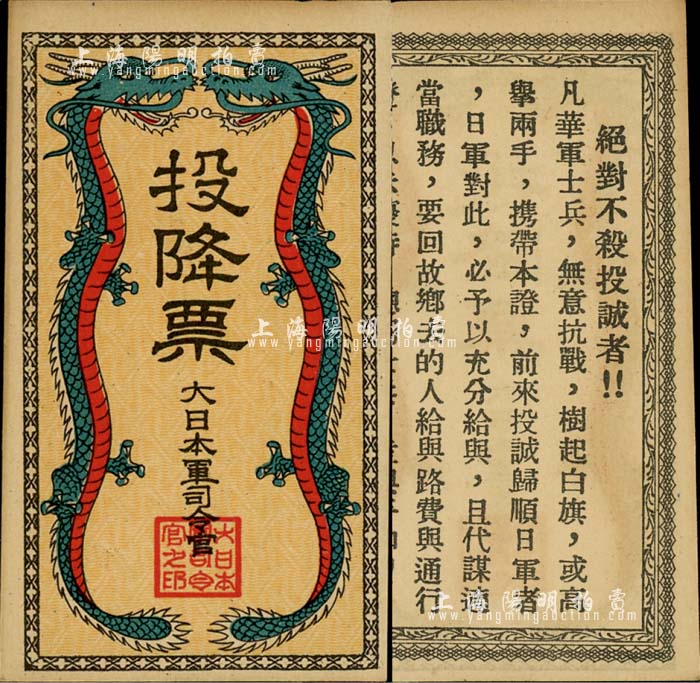 上海陽明拍賣
www.yangmingauction.com
投降票
大日本軍司令官
大日本
軍司令
官之印
絕對不殺投誠者!!
凡華軍士兵，無意抗戰，樹起白旗，或高
舉兩手，携帶本證，前來投誠歸順日軍者
，日軍對此，必予以充分給與，且代謀適
當職務，要回故鄉去的人給與路費與通行
上海陽明拍賣
www.yangmingauction.com
上海陽明拍賣
www.yangmingauction.com